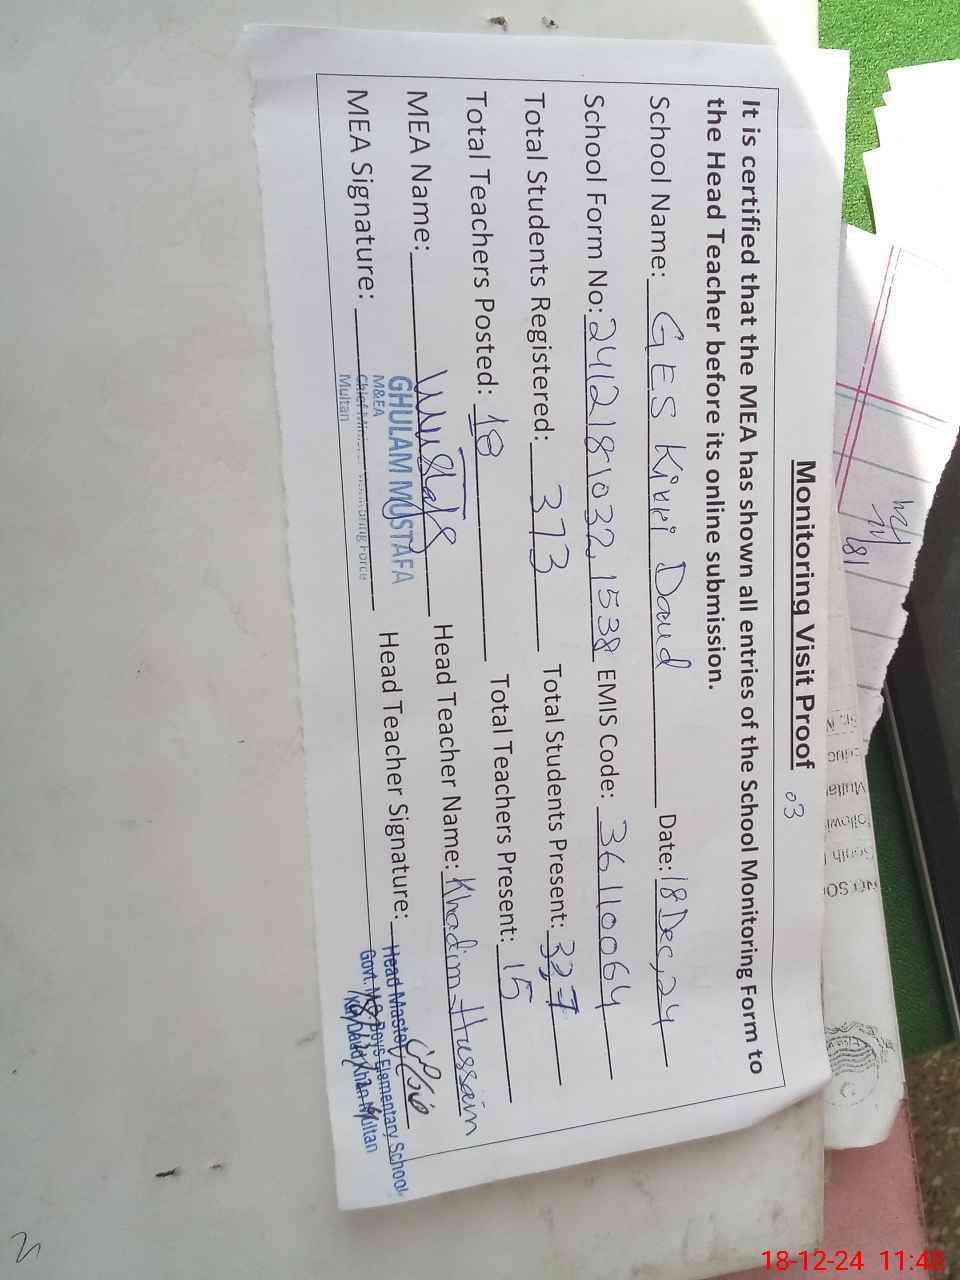 Monitoring Visit Proof
03
It is certified that the MEA has shown all entries of the School Monitoring Form to
the Head Teacher before its online submission.
School Name: GES Kiri Daud Date: 18 Dec, 24
School Form No: 2412181032,1538 EMIS Code: 36110064
Total Students Registered: 373 Total Students Present: 337
Total Teachers Posted: 18 Total Teachers Present: 15
MEA Name: Mustafa Head Teacher Name: Khadim Hussain
MEA Signature: Head Teacher Signature:
GHULAM MUSTAFA
M&EA
Chief Minister Monitoring Force
Multan
Head Master
Govt. M.C. Boys Elementary School
Kiri Daud Khan Multan
18-12-24 11:48